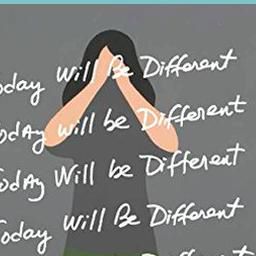 oday Will Be Different
oday will be Different
odAy Will be Different
Today Will Be Different